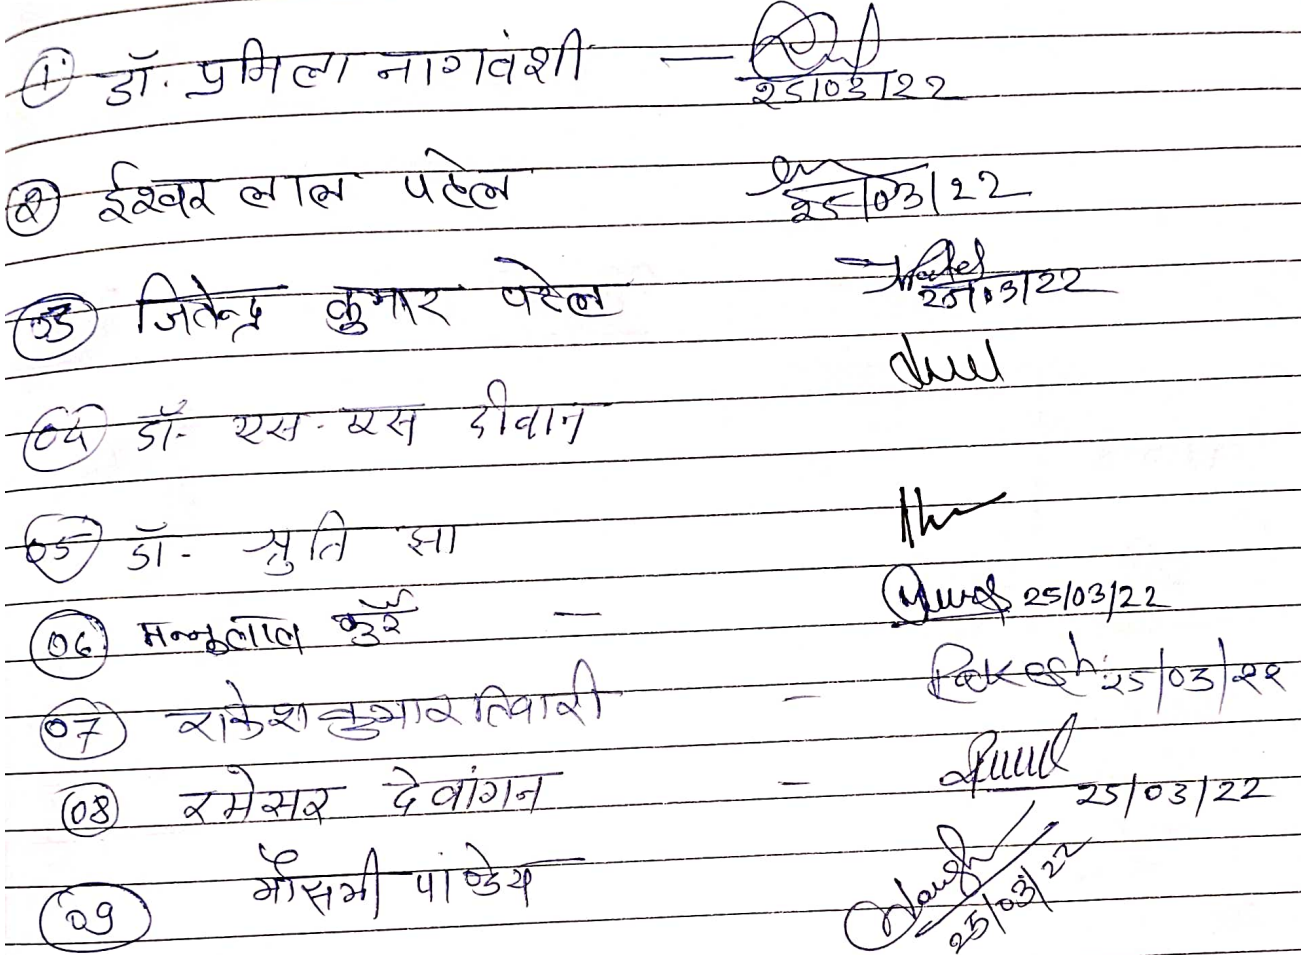 ① डॉ. प्रमिला नागवंशी — 25/03/22
② ईश्वर लाल पटेल 25/03/22
03 जितेन्द्र कुमार पटेल Patel 25/03/22
04 डॉ. एस. एस दीवान
05 डॉ- श्रुति झा
06 मन्नूलाल कुर्रे — 25/03/22
07 राकेश कुमार तिवारी - Rakesh 25/03/22
08 रमेसर देवांगन - 25/03/22
09 मौसमी पाण्डेय 25/03/22